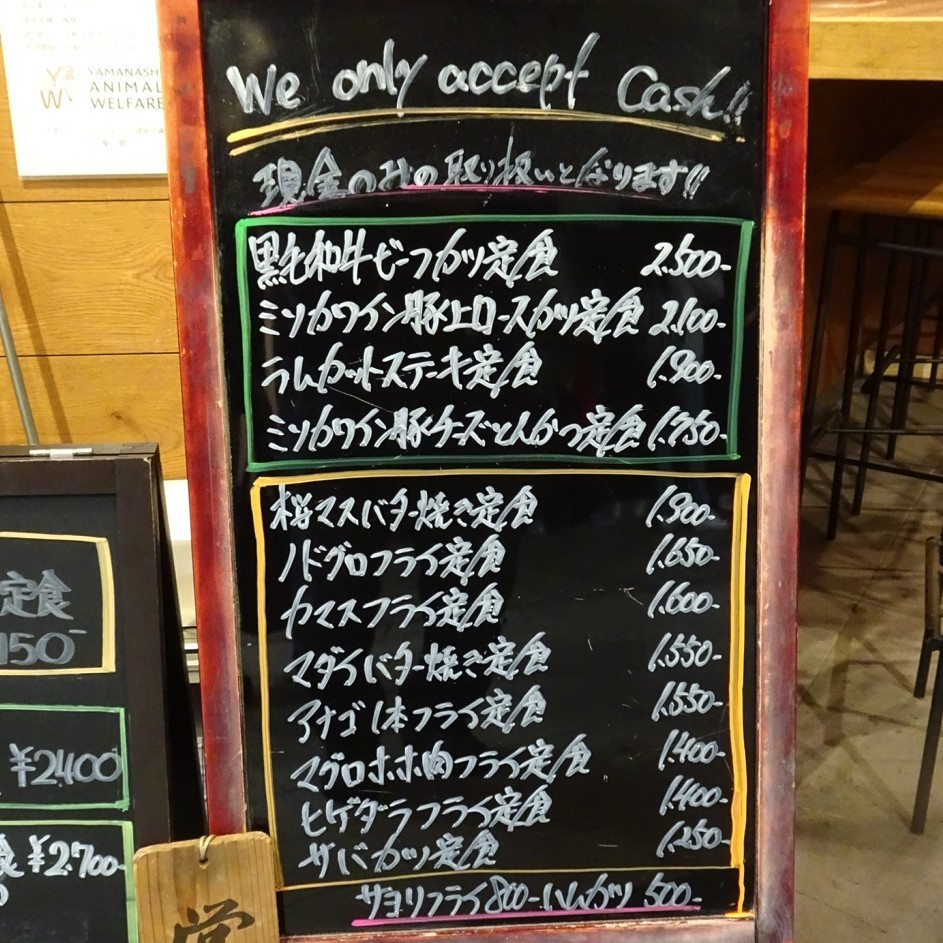 YAMANASHI
ANIMAL
WELFARE
We only accept Cash!!
現金のみの取り扱いとなります!!
黒毛和牛ビーフカツ定食 2.500-
ミソカワイン豚上ロースカツ定食 2.100-
ラムカットステーキ定食 1.900-
ミソカワイン豚チーズとんかつ定食 1.750-
桜マスバター焼き定食 1.900-
ノドグロフライ定食 1.650-
カマスフライ定食 1.600-
マダイバター焼き定食 1.550-
アナゴ1本フライ定食 1.550-
マグロホホ肉フライ定食 1.400-
ヒゲダラフライ定食 1.400-
サバカツ定食 1.250-
サヨリフライ800- ハムカツ 500-
定食
150-
¥2400
食 ¥2.700-
営